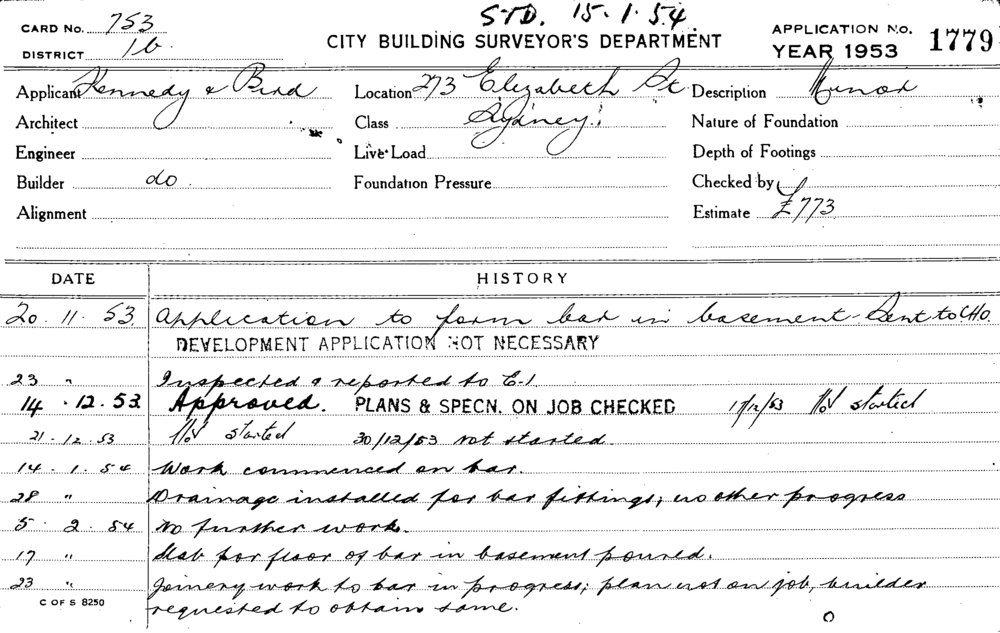 STD. 15.1.54
CARD No. 753
DISTRICT 1b
CITY BUILDING SURVEYOR'S DEPARTMENT
APPLICATION No. 1779
YEAR 1953
Applicant Kennedy & Bird Location 273 Elizabeth St Description Minor
Architect Class Sydney. Nature of Foundation
Engineer Live Load Depth of Footings
Builder do Foundation Pressure Checked by
Alignment Estimate £773
DATE HISTORY
20.11.53. Application to form bar in basement - Sent to CHO.
DEVELOPMENT APPLICATION NOT NECESSARY
23 " Inspected & reported to E.1.
14.12.53. Approved. PLANS & SPECN. ON JOB CHECKED 17/12/53 Not started
21.12.53 Not started 30/12/53 not started.
14.1.54 Work commenced on bar.
28 " Drainage installed for bar fittings, no other progress
5.2.54 No further work.
17 " Slab for floor of bar in basement poured.
23 " Joinery work to bar in progress; plan not on job, builder
requested to obtain same.
C OF S 8250